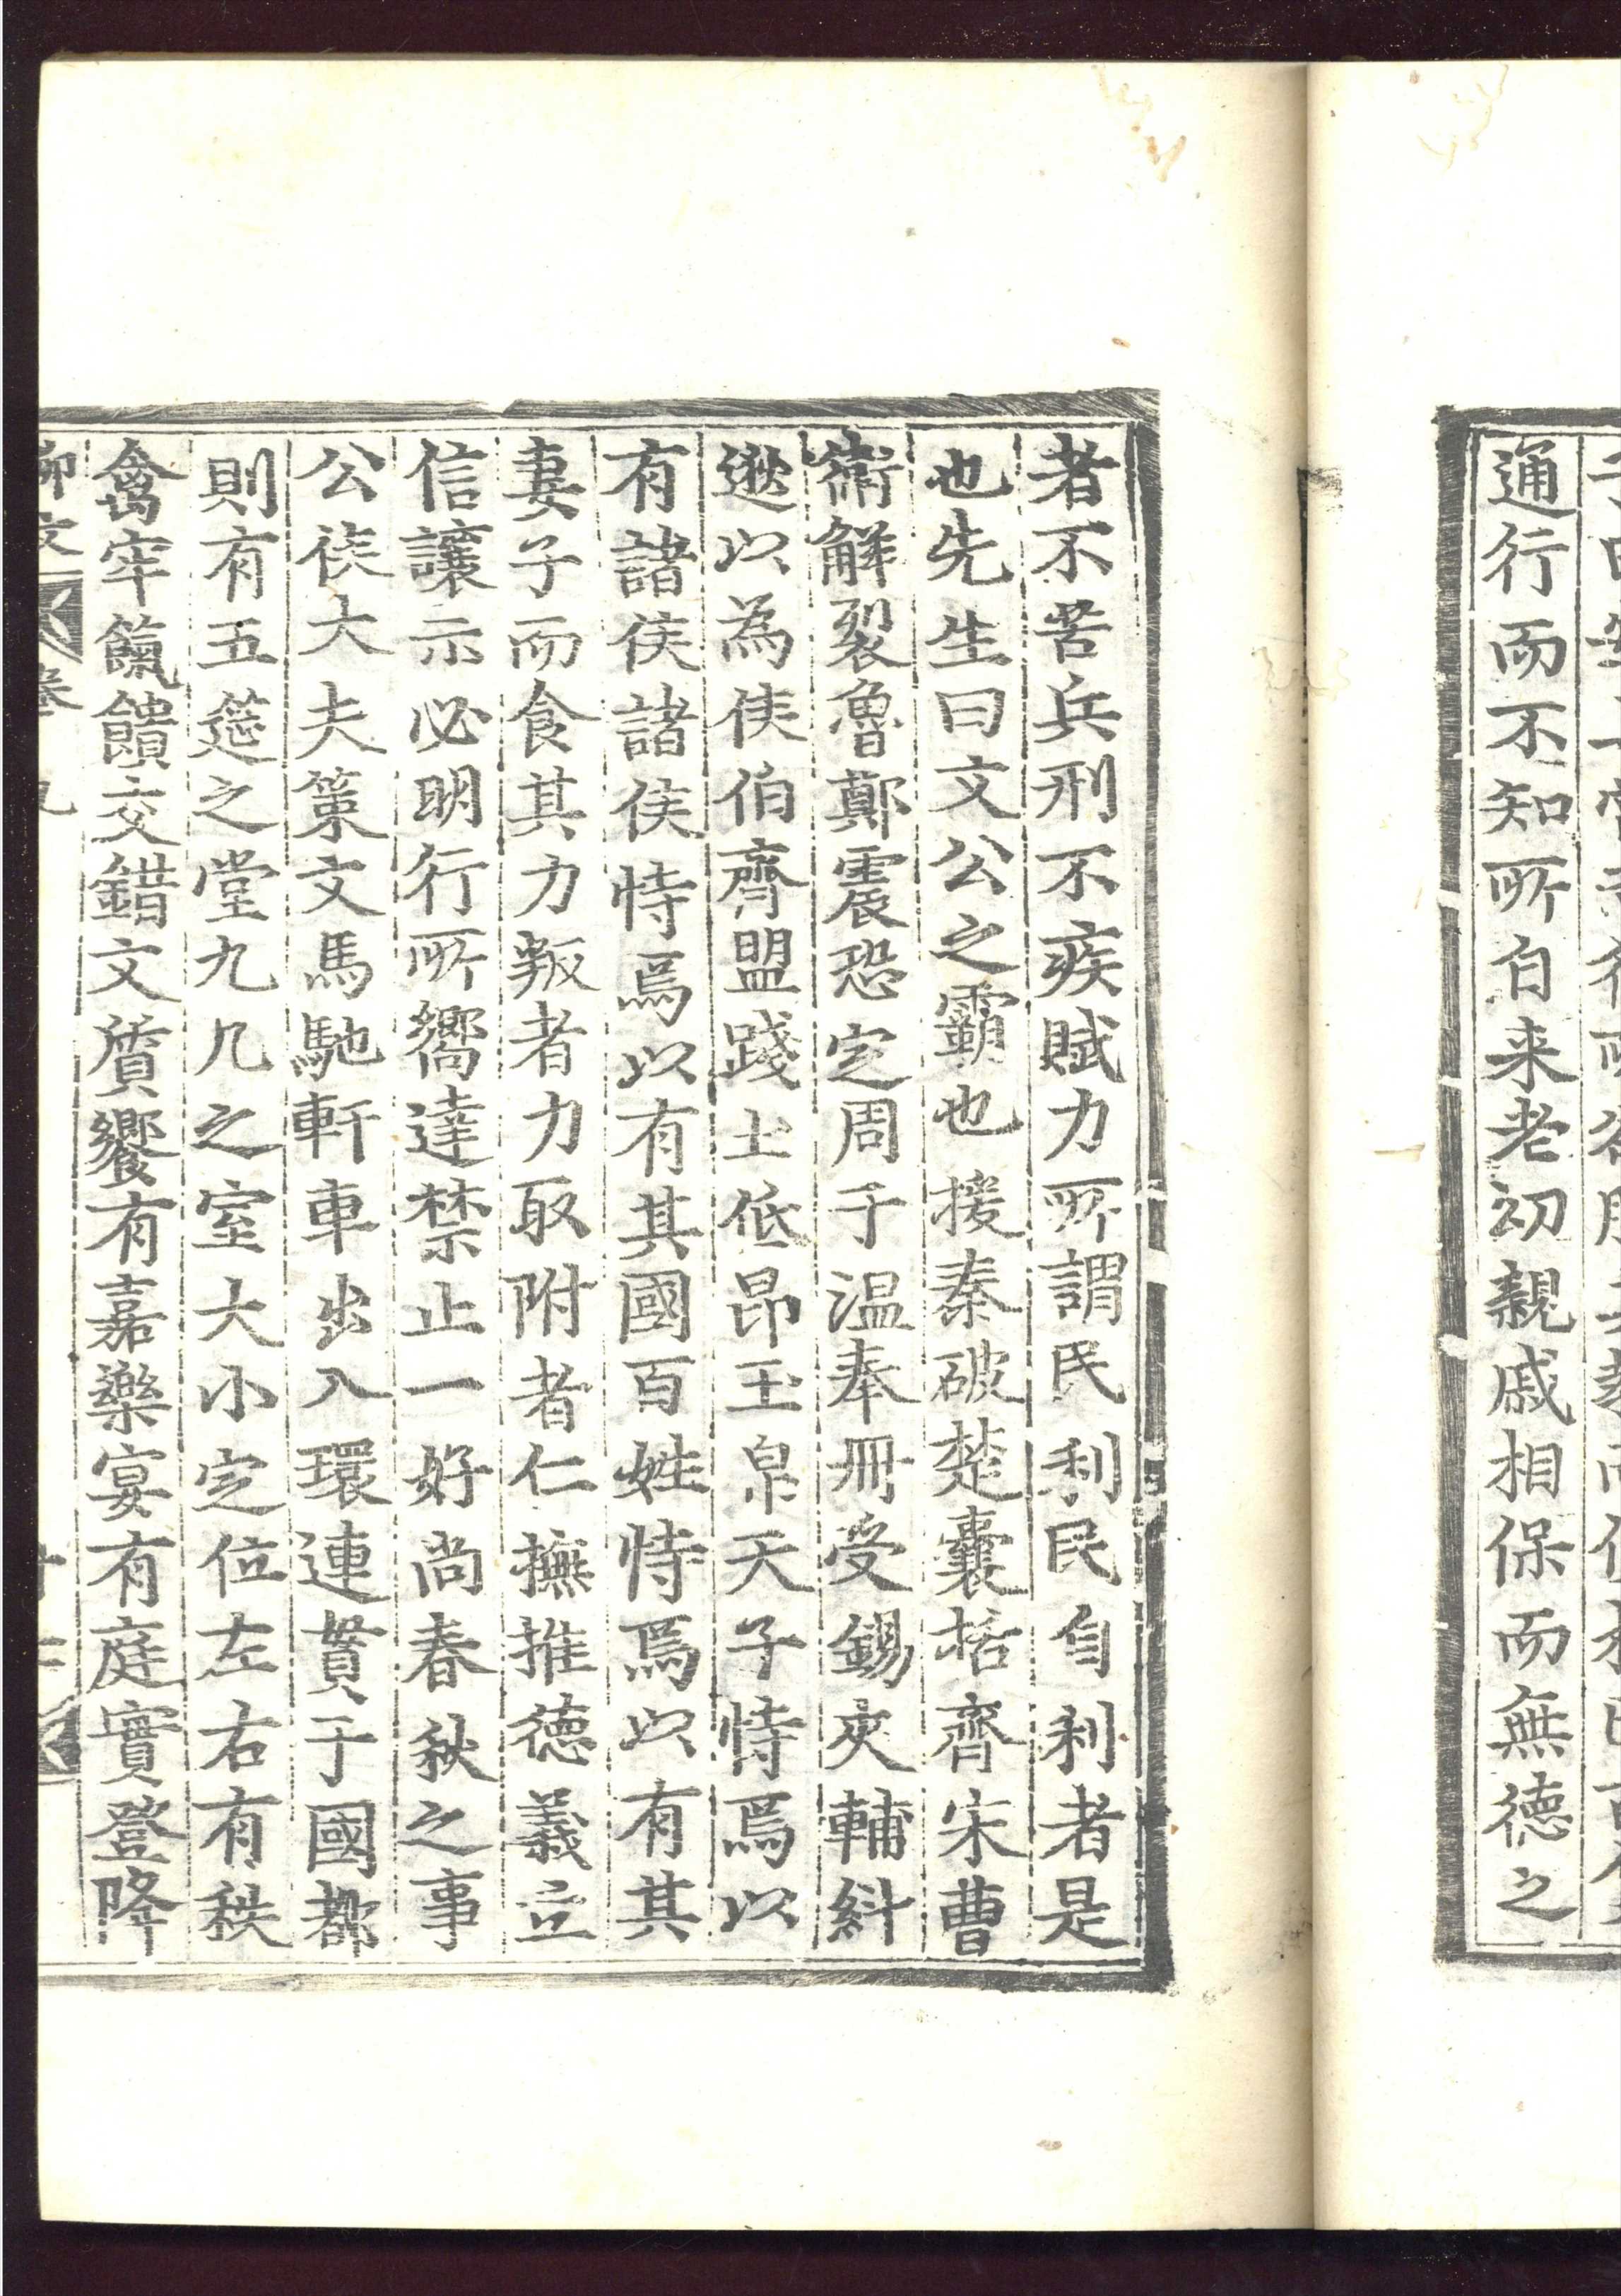 通行而不知所自来老初親戚相保而無德之
者不苦兵刑不疾賦力所謂民利民自利者是
也先生曰文公之霸也援秦破楚囊括齊宋曹
衛解裂魯鄭震恐定周于温奉冊受錫夾輔糾
逖以為侯伯齊盟踐土低昂玉帛天子恃焉以
有諸侯諸侯恃焉以有其國百姓恃焉以有其
妻子而食其力叛者力取附者仁撫推德義立
信讓示必明行所嚮達禁止一好尚春秋之事
公侯大夫策文馬馳軒車出入環連貫于國都
則有五筵之堂九几之室大小定位左右有秩
禽牢餼饋交錯文質饗有嘉樂宴有庭實登降
柳文 卷九